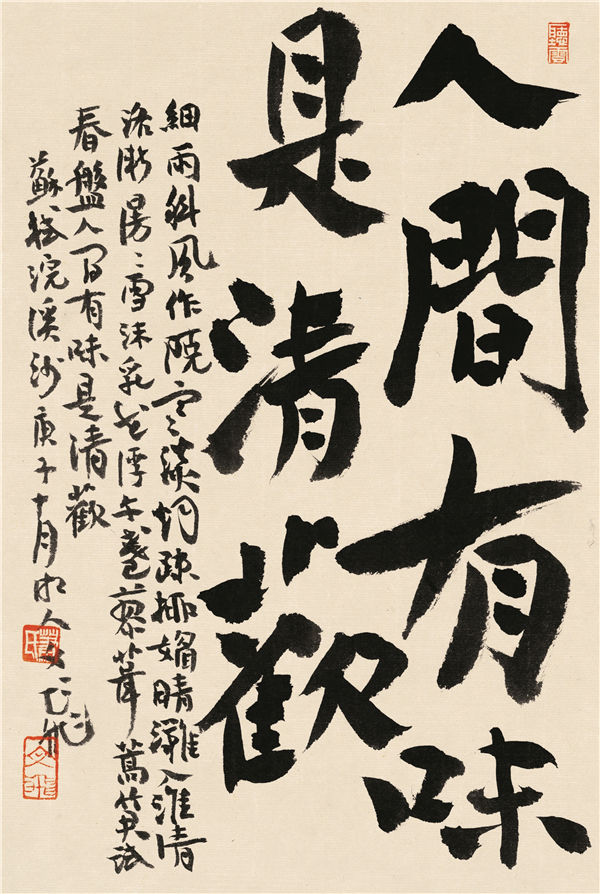 人間有味
是清歡
細雨斜風作曉寒淡烟疏柳媚晴灘入淮清
洛漸漫〻雪沫乳花浮午盞蓼茸蒿筍試
春盤人间有味是清歡
蘇軾浣溪沙庚子十月